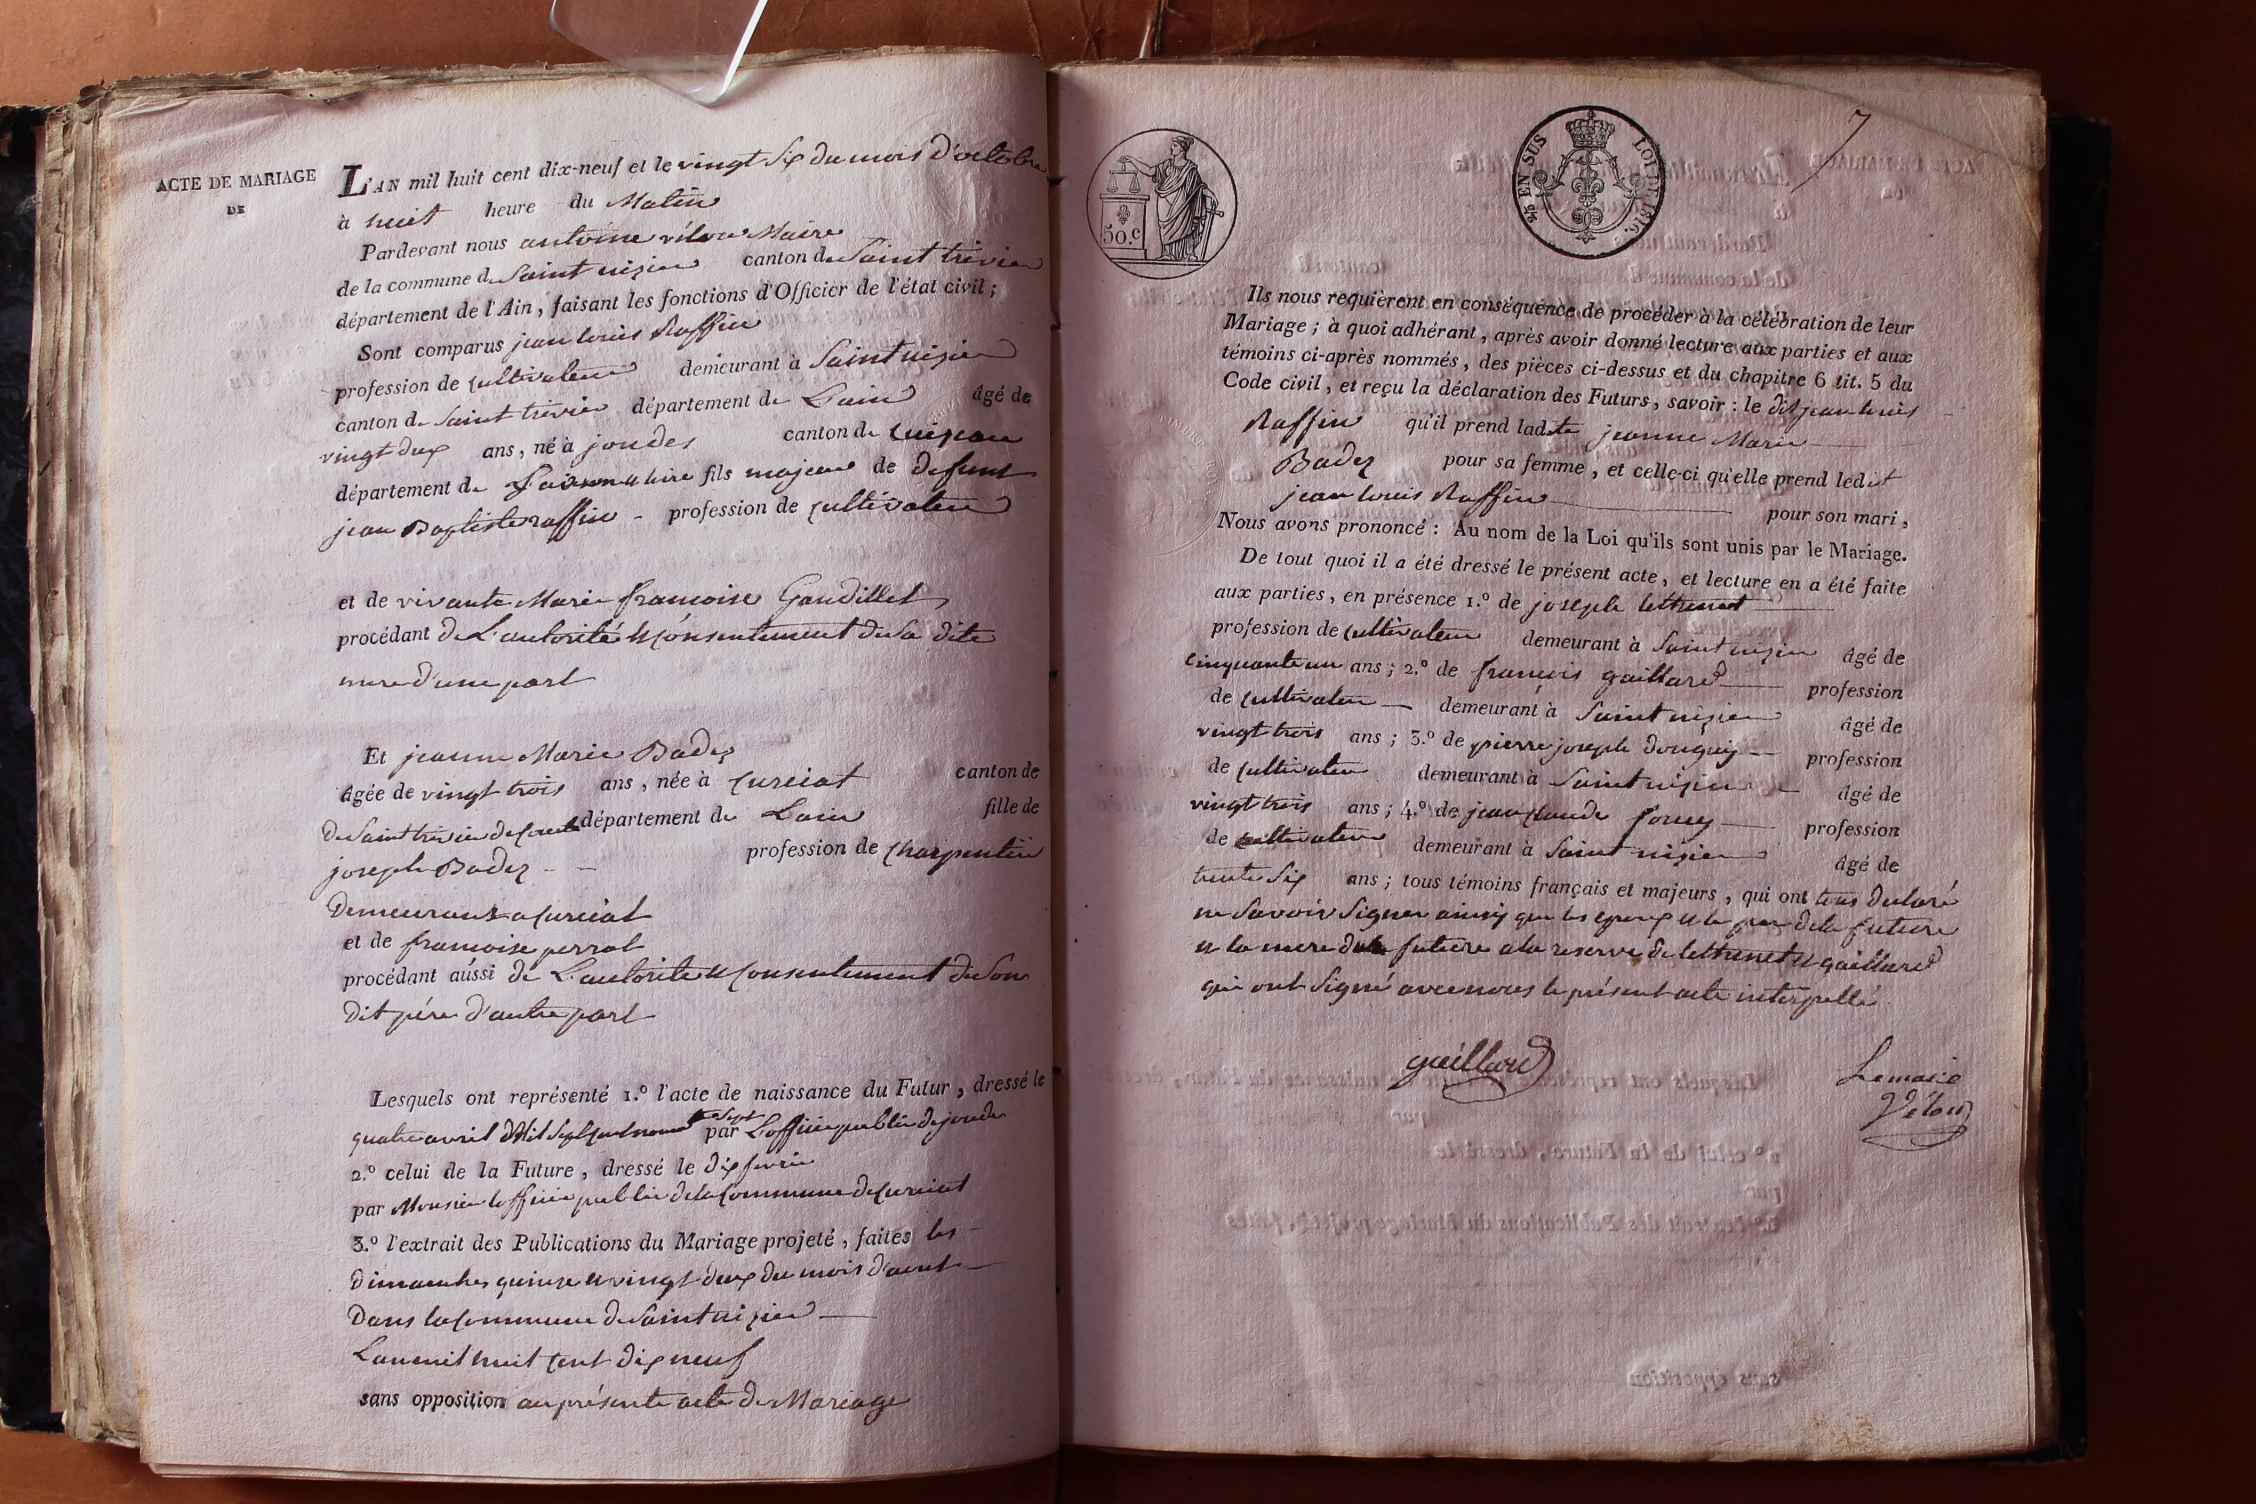 ACTE DE MARIAGE
DE
L'AN mil huit cent dix-neuf et le vingt six du mois d'octobre
à huit heure du Matin
Pardevant nous antoine vélon Maire
de la commune de Saint nizier canton de Saint trivier
département de l'Ain, faisant les fonctions d'Officier de l'état civil;
Sont comparus jean louis Raffin
profession de cultivateur demeurant à Saint nizier
canton de Saint trivier département de L'ain âgé de
vingt deux ans, né à joudes canton de Cuiseau
département de Saone et loire fils majeur de defunt
jean Baptiste raffin - profession de cultivateur
et de vivante Marie francoise Gaudillet
procédant de L'autorité et consentement de sa dite
mere d'une part
Et jeanne Marie Badez
âgée de vingt trois ans, née à Curciat canton de
de Saint trivier de Courtes département de Lain fille de
joseph Badez - - profession de Charpentier
Demeurant a Curciat
et de francoise perrat
procédant aussi de L'autorité et Consentement de Son
Dit pére d'autre part
Lesquels ont représenté 1.º l'acte de naissance du Futur, dressé le
quatre avril Mil Sept Cent nonante Sept par L'officier public de joudes
2.º celui de la Future, dressé le dix fevrier
par Monsieur lofficier public de la Commune de Curciat
3.º l'extrait des Publications du Mariage projeté, faites les
dimanches quinze et vingt deux du mois d'aout
Dans la Commune de Saint nizier
L'an mil huit Cent dix neuf
sans opposition au présente acte de Mariage
7
50.c
2/5 EN SUS LOI DE 1816.
Ils nous requièrent en conséquence de procéder à la célébration de leur
Mariage; à quoi adhérant, après avoir donné lecture aux parties et aux
témoins ci-après nommés, des pièces ci-dessus et du chapitre 6 tit. 5 du
Code civil, et reçu la déclaration des Futurs, savoir: le dit jean louis
Raffin qu'il prend ladite jeanne Marie
Badez pour sa femme, et celle-ci qu'elle prend ledit
jean louis Raffin pour son mari,
Nous avons prononcé: Au nom de la Loi qu'ils sont unis par le Mariage.
De tout quoi il a été dressé le présent acte, et lecture en a été faite
aux parties, en présence 1.º de joseph lethenet
profession de cultivateur demeurant à Saint nizier âgé de
cinquante un ans; 2.º de françois gaillard profession
de cultivateur demeurant à Saint nizier âgé de
vingt trois ans; 3.º de pierre joseph Donguy profession
de cultivateur demeurant à Saint nizier âgé de
vingt trois ans; 4.º de jean Claude forey profession
de cultivateur demeurant à Saint nizier âgé de
trente Six ans; tous témoins français et majeurs, qui ont tous declaré
ne Savoir Signer ainsy que les epoux et le pere de la future
et la mere du futur a la reserve de lethenet et gaillard
qui ont Signé avec nous le présent acte interpellé
gaillard
Le maire
Vélon